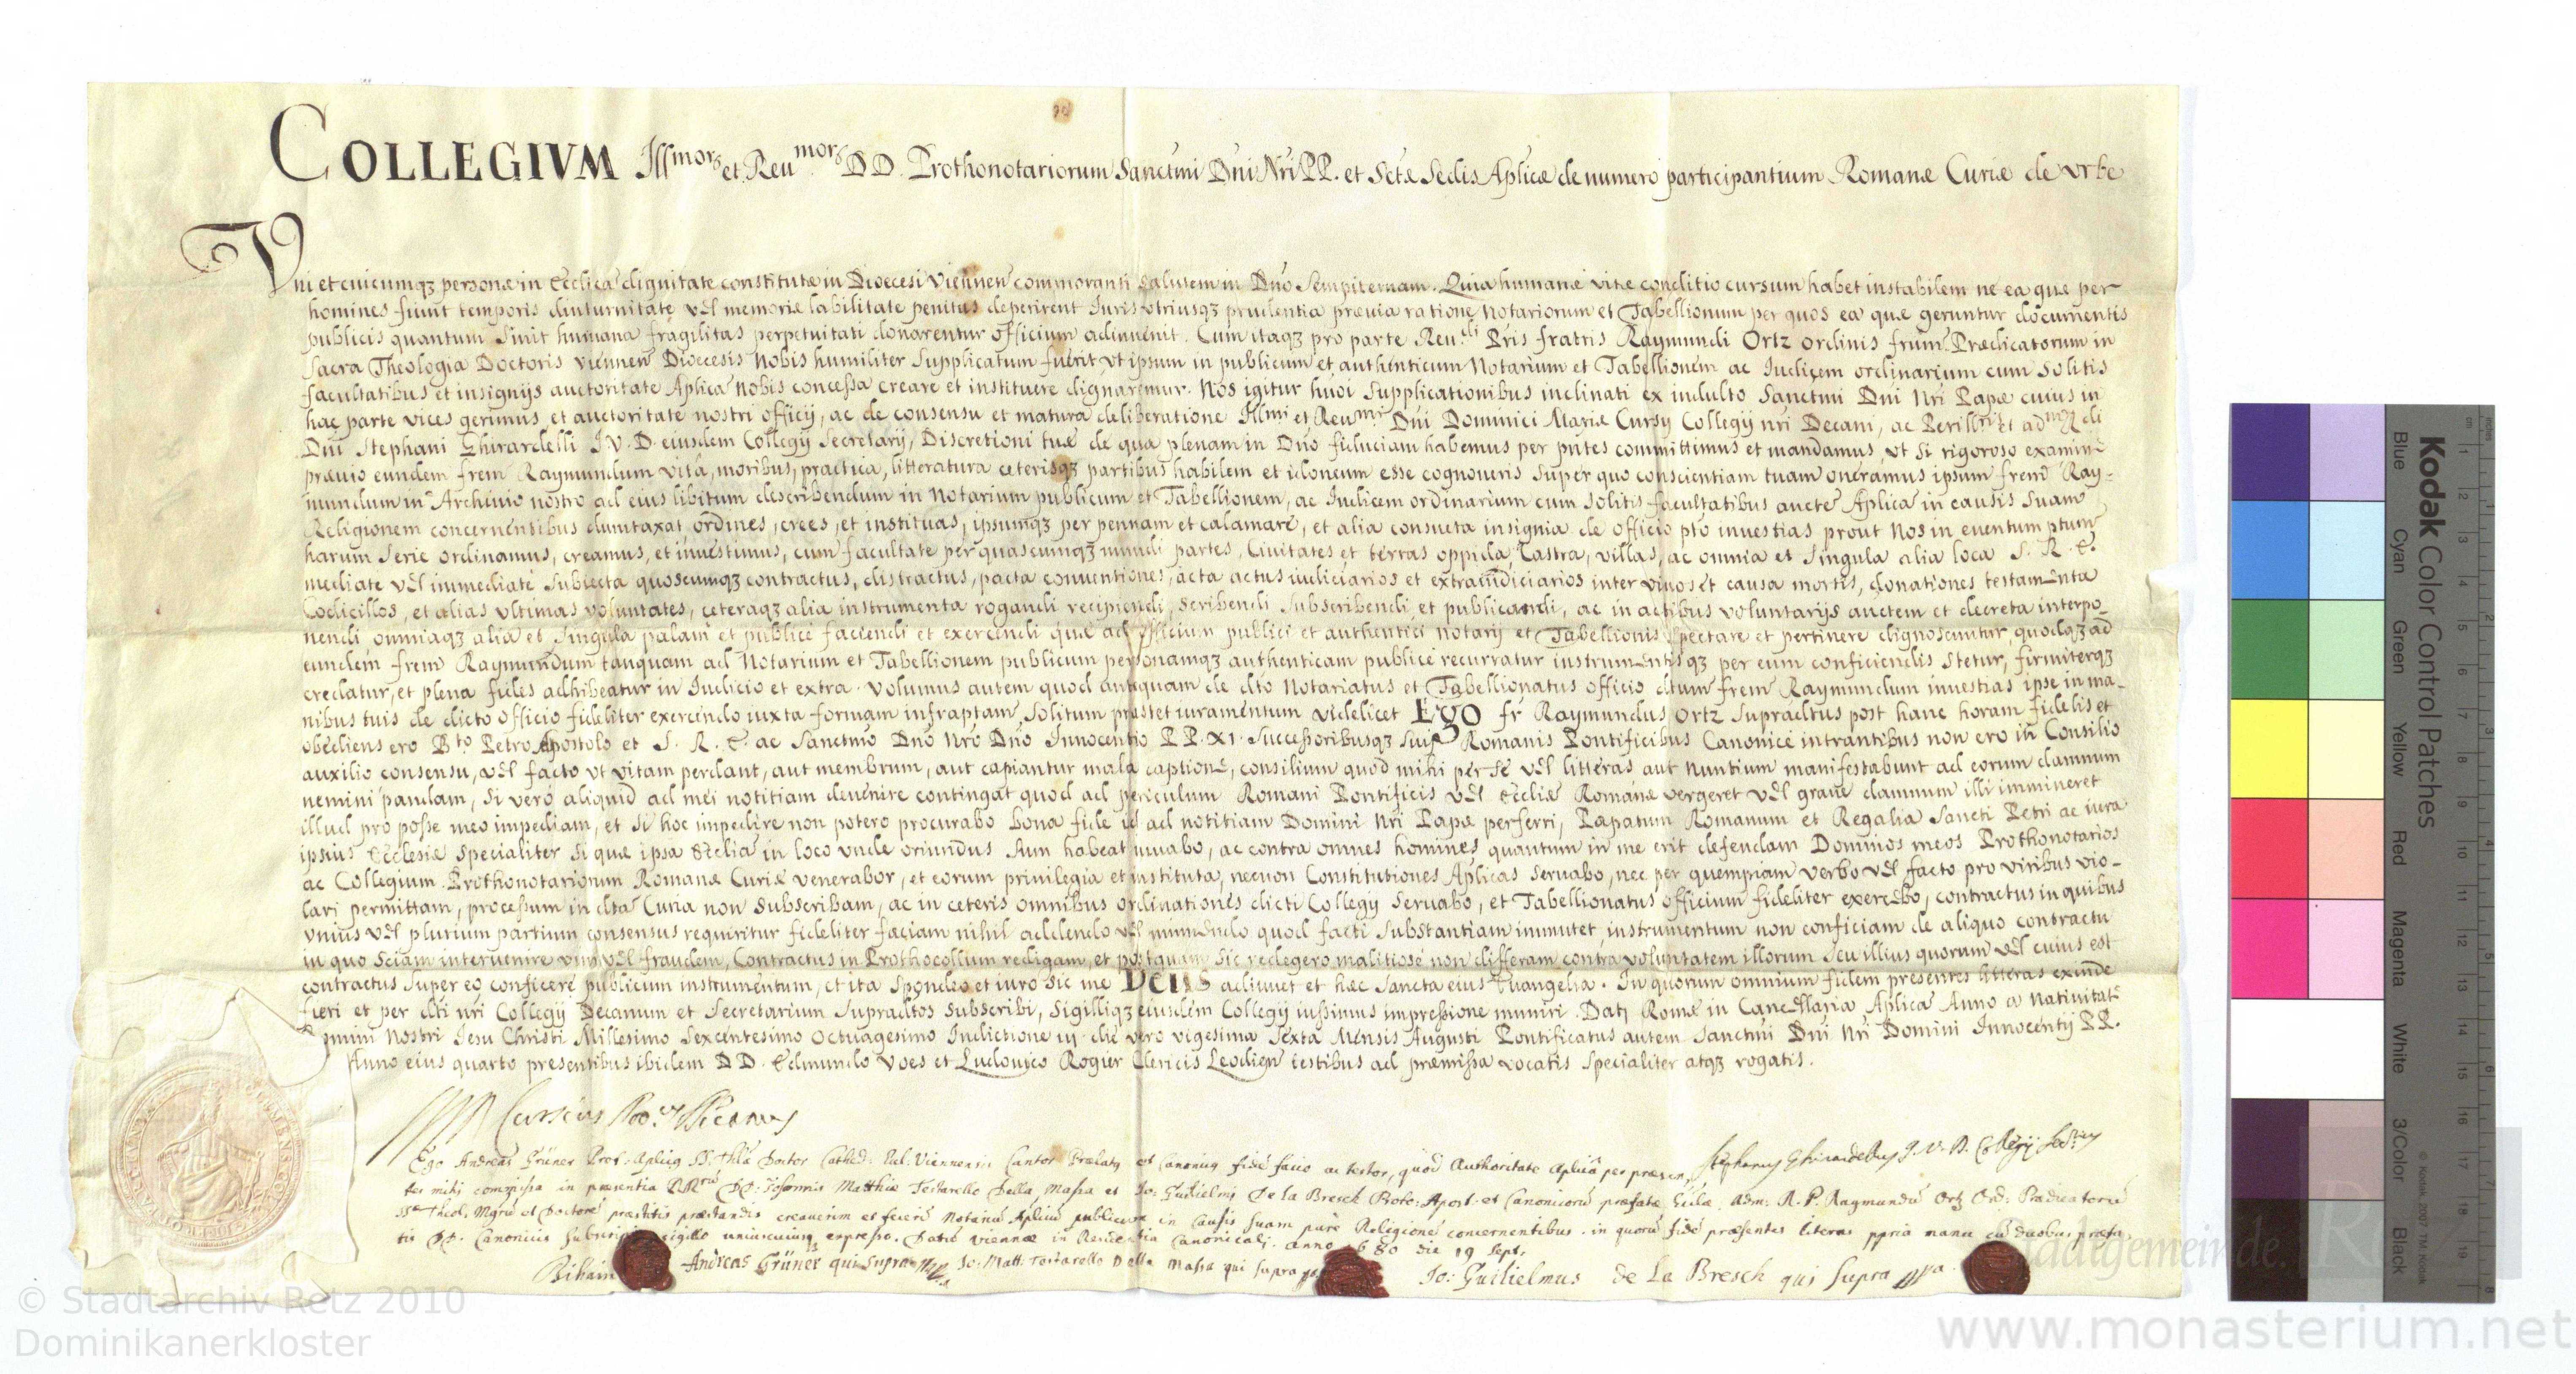 COLLEGIVM Illmor et Reumor DD. Prothonotariorum Sanctmi Dni Nri PP. et Sctæ Sedis Aplicæ de numero participantium Romanæ Curiæ de vrbe
Vni et cuicumqз personæ in Ecclica dignitate constitutæ in Diœcesi Viennen commoranti salutem in Dno Sempiternam. Quia humanæ vitæ conditio cursum habet instabilem ne ea quæ per
homines fiunt temporis diuturnitate vel memoriæ labilitate penitus deperirent Iuris vtriusqз prudentia prævia ratione Notariorum et Tabellionum per quos ea quæ geruntur documentis
publicis quantum sinit humana fragilitas perpetuitati donarentur officium adinuenit. Cum itaqз pro parte Reudi Pris fratris Raymundi Ortz ordinis frum Prædicatorum in
Sacra Theologia Doctoris Viennen Diœcesis Nobis humiliter supplicatum fuerit vt ipsum in publicum et authenticum Notarium et Tabellionem ac Iudicem ordinarium cum solitis
facultatibus et insignijs auctoritate Aplica Nobis concessa creare et instituere dignaremur. Nos igitur huoi supplicationibus inclinati ex indulto Sanctmi Dni Nri Papæ cuius in
hac parte vices gerimus, et auctoritate nostri officij, ac de consensu et matura deliberatione Illmi et Reumi Dni Dominici Mariæ Cursy Collegij nri Decani, ac Perillris et
Dni Stephani Ghirardelli J.V.D. eiusdem Collegij Secretarij, Discretioni tuæ de qua plenam in Dno fiduciam habemus per pntes committimus et mandamus, vt si rigoroso examine
prævio eundem frem Raymundum vita, moribus, practica, litteratura ceterisqз partibus habilem et idoneum esse cognoueris super quo conscientiam tuam oneramus ipsum frem Ray-
mundum in Archiuio nostro ad eius libitum describendum in Notarium publicum et Tabellionem, ac Iudicem ordinarium cum solitis facultatibus aucte Aplica in causis suam
Religionem concernentibus dumtaxat, ordines, crees, et instituas, ipsumqз per pennam et calamare, et alia consueta insignia de officio pto inuestias prout Nos in euentum ptum
harum serie ordinamus, creamus, et inuestimus, cum facultate per quascumqз mundi partes, Ciuitates et terras oppida, Castra, villas, ac omnia et singula alia loca S. R. E.
mediate vel immediate subiecta quoscumqз contractus, distractus, pacta conuentiones, acta actus iudiciarios et extraiudiciarios inter viuos et causa mortis, donationes testamenta
Codicillos, et alias vltimas voluntates, ceteraqз alia instrumenta rogandi recipiendi, scribendi subscribendi et publicandi, ac in actibus voluntarijs auctem et decreta interpo-
nendi omniaqз alia et singula palam et publice faciendi et exercendi quæ ad officium publici et authentici Notarij et Tabellionis spectare et pertinere dignoscuntur, quodqз ad
eundem frem Raymundum tanquam ad Notarium et Tabellionem publicum personamqз authenticam publice recurratur instrumentisqз per eum conficiendis stetur, firmiterqз
credatur, et plena fides adhibeatur in Iudicio et extra. Volumus autem quod antequam de dto Notariatus et Tabellionatus officio dtum frem Raymundum inuestias ipse in ma-
nibus tuis de dicto officio fideliter exercendo iuxta formam infraptam solitum prestet iuramentum videlicet Ego fr Raymundus Ortz supradtus post hanc horam fidelis et
obediens ero Bto Petro Apostolo et S. R. E. ac Sanctmo Dno Nro Dno Innocentio PP. XI. Successoribusqз suis Romanis Pontificibus Canonice intrantibus non ero in Consilio
auxilio consensu, vel facto vt vitam perdant, aut membrum, aut capiantur mala captione, consilium quod mihi per se vel litteras aut nuntium manifestabunt ad eorum damnum
nemini pandam, si vero aliquid ad mei notitiam deuenire contingat quod ad periculum Romani Pontificis vel Eccliæ Romanæ vergeret vel graue damnum illi immineret
illud pro posse meo impediam, et si hoc impedire non potero procurabo bona fide id ad notitiam Domini Nri Papæ perferri, Papatum Romanum et Regalia Sancti Petri ac iura
ipsius Ecclesiæ specialiter si quæ ipsa Ecclia in loco vnde oriundus sum habeat iuuabo, ac contra omnes homines quantum in me erit defendam Dominos meos Prothonotarios
ac Collegium Prothonotariorum Romanæ Curiæ venerabor, et eorum priuilegia et instituta, necnon Constitutiones Aplicas seruabo, nec per quempiam verbo vel facto pro viribus vio-
lari permittam, processum in dta Curia non subscribam, ac in ceteris omnibus ordinationes dicti Collegij seruabo, et Tabellionatus officium fideliter exercebo, contractus in quibus
vnius vel plurium partium consensus requiritur fideliter faciam nihil addendo vel minuendo quod facti substantiam immutet, instrumentum non conficiam de aliquo contractu
in quo sciam interuenire vim vel fraudem, Contractus in Prothocollum redigam, et postquam sic redegero malitiose non differam contra voluntatem illorum seu illius quorum vel cuius est
contractus super eo conficere publicum instrumentum, et ita spondeo et iuro sic me DEUS adiuuet et hæc Sancta eius Euangelia. In quorum omnium fidem presentes litteras exinde
fieri et per dti nri Collegij Decanum et Secretarium supradtos subscribi, sigilliqз eiusdem Collegij iussimus impressione muniri. Dat Romæ in Cancellaria Aplica Anno a Natiuitate
Domini Nostri Jesu Christi Millesimo sexcentesimo octuagesimo Indictione iij die vero vigesima sexta Mensis Augusti Pontificatus autem Sanctmi Dni Nri Domini Innocentij PP.
Anno eius quarto presentibus ibidem DD. Edmundo Voes et Ludouico Rogier Clericis Leodien testibus ad præmissa vocatis specialiter atqз rogatis.
Cursius
Stephanus Ghirardellus J.V.D. Collegij Secrius
Ego Andreas Grüner Prot: Aplicus SS: Thlæ Doctor Cathed: Eccl: Viennensis Cantor Prælatus et Canonicus fidem facio ac testor, quod Authoritate Aplica per præsen-
tes mihi commissa in præsentia DD: Joannis Matthiæ Testarello Della Massa et Jo: Guilielmi De la Bresch Proto: Apost. et Canonicorum præfatæ Eccliæ Adm: R. P. Raymundum Ortz Ord: Prædicatorum
SS Theol. Mgrum et Doctorem præstitis præstandis creauerim et fecerim Notarium Aplicum publicum in Causis suam pure Religionem concernentibus. in quorum fidem præsentes literas ppria manu cum duobus præfa-
tis DD. Canonicis subscripsi sigillo uniuscuiusqз expresso. Datum Viennæ in Residentia Canonicali anno 1680 die 19 Sept.
Andreas Grüner qui supra Jo: Matt: Testarello Della Massa qui supra Jo: Guilielmus de La Bresch qui supra
© Stadtarchiv Retz 2010
Dominikanerkloster
Stadtgemeinde
www.monasterium.net
Kodak Color Control Patches
Blue Cyan Green Yellow Red Magenta White 3/Color Black
© Kodak, 2007 TM: Kodak